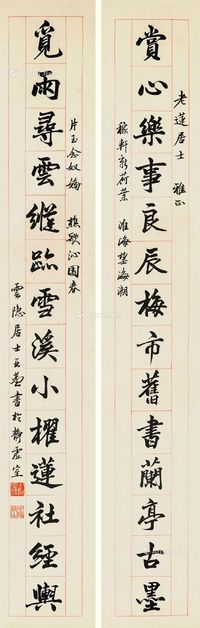 老蓮居士 雅正
賞心樂事良辰梅市舊書蘭亭古墨
稼軒新荷葉 淮海望海潮
片玉念奴嬌 樵歌沁園春
覓雨尋雲縱跡雪溪小櫂蓮社經輿
雲隱居士 書於靜虛室